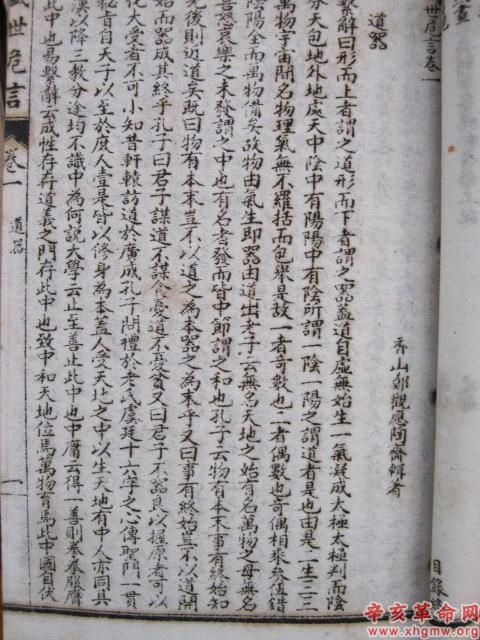 目錄
世危言卷一
香山鄭觀應陶齋輯著
道器
繫辭曰形而上者謂之道形而下者謂之器蓋道自虛無始生一氣凝成大極太極判而陰
分天包地外地處天中陰中有陽陽中有陰所謂一陰一陽之謂道者是也由是二生三三
萬物宇宙間名物理氣無不羅括而包舉是故一者奇數也二者偶數也奇偶相乘參伍錯
陰陽全而萬物備矣故物由氣生即器由道出老子云無名天地之始有名萬物之母無名
喜怒哀樂之未發謂之中也有名者發而皆中節謂之和也孔子云物有本末事有終始知
先後則近道矣既曰物有本末豈不以道之為本器之為末乎又曰事有終始豈不以道開
始而器成其終乎孔子曰君子謀道不謀食憂道不憂貧又曰君子不器良以握原者可以
化大受者不可小知昔軒轅訪道於廣成孔子問禮於老氏虞廷十六字之心傳聖門一貫
秘旨自天子以至於庶人壹是皆以修身為本蓋人受天地之中以生天地有中人亦同具
漢以降三教分途均不識中為何說大學云止至善止此中也中庸云得一善則拳拳服膺
此中也易繫辭云成性存存道義之門存此中也致中和天地位焉萬物育焉此中國自伏
盛世危言 卷一 道器 一
辛亥革命网
www.xhgmw.org